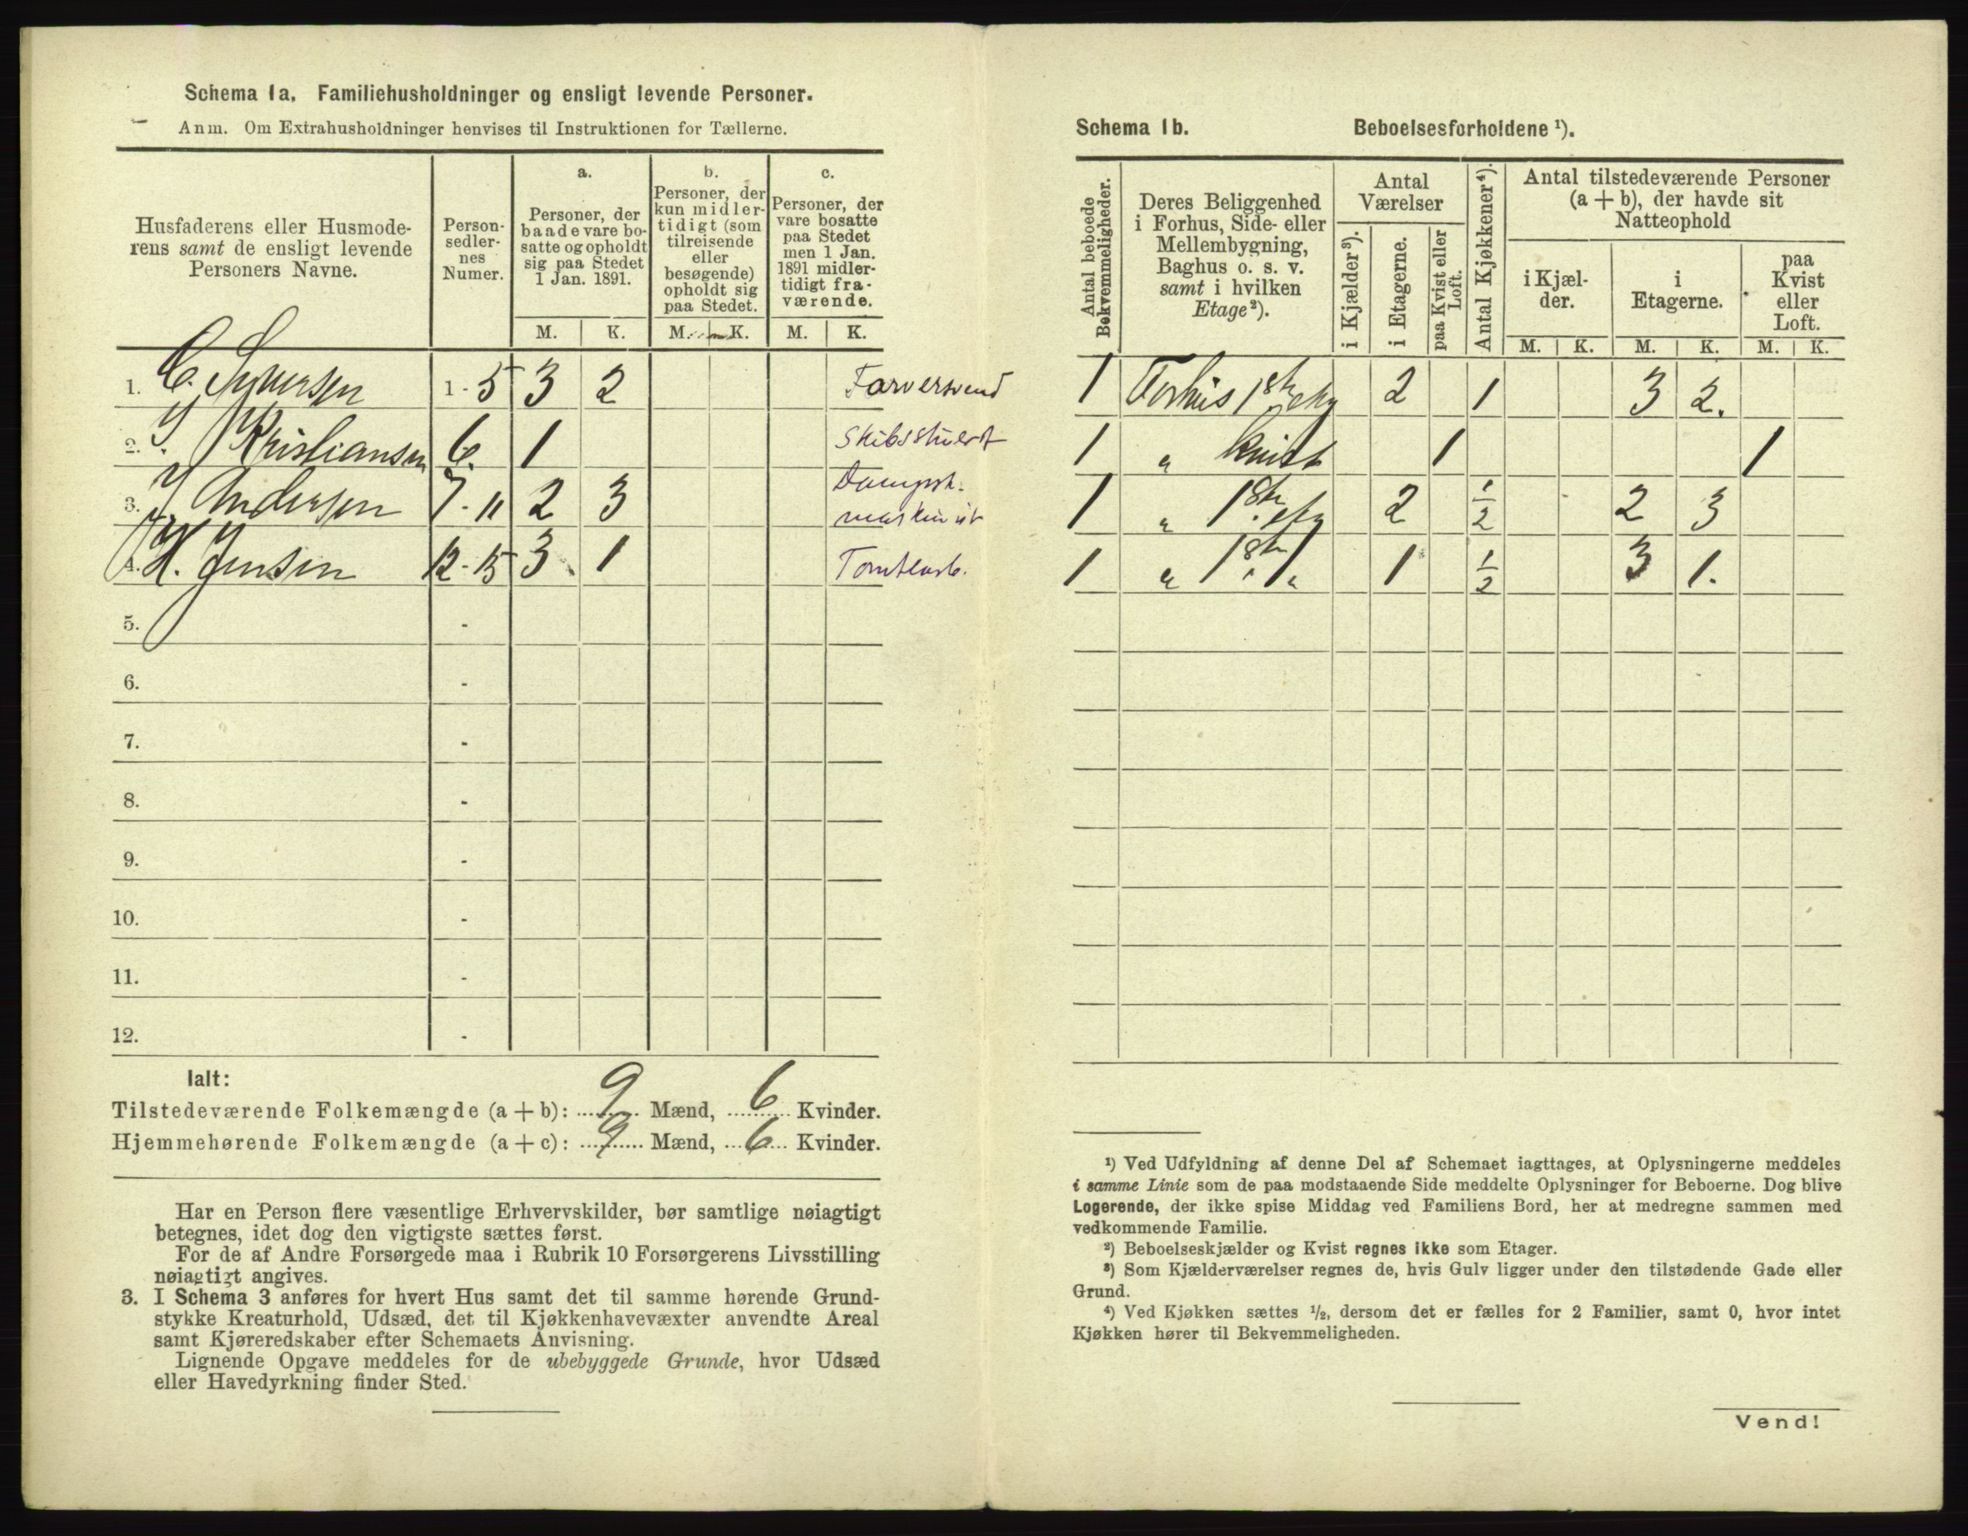 Schema 1a. Familiehusholdninger og ensligt levende Personer.
Anm. Om Extrahusholdninger henvises til Instruktionen for Tællerne.
Husfaderens eller Husmode-
rens samt de ensligt levende
Personers Navne.
Person-
sedler-
nes
Numer.
a.
Personer, der
baade vare bo-
satte og opholdt
sig paa Stedet
1 Jan. 1891.
b.
Personer, der
kun midler-
tidigt (som
tilreisende
eller
besøgende)
opholdt sig
paa Stedet.
c.
Personer, der
vare bosatte
paa Stedet
men 1 Jan.
1891 midler-
tidigt fra-
værende.
M. K. M. K. M. K.
1. C. Syversen 1-5 3 2 Farversvend
2. J. Kristiansen 6. 1 Skibsstuert
3. J. Andersen 7-11 2 3 Dampsk. maskinist
4. H. Jensen 12-15 3 1 Tomtearb.
5. -
6. -
7. -
8. -
9. -
10. -
11. -
12. -
Ialt:
Tilstedeværende Folkemængde (a + b): 9 Mænd, 6 Kvinder.
Hjemmehørende Folkemængde (a + c): 9 Mænd, 6 Kvinder.
Har en Person flere væsentlige Erhvervskilder, bør samtlige nøiagtigt
betegnes, idet dog den vigtigste sættes først.
For de af Andre Forsørgede maa i Rubrik 10 Forsørgerens Livsstilling
nøiagtigt angives.
3. I Schema 3 anføres for hvert Hus samt det til samme hørende Grund-
stykke Kreaturhold, Udsæd, det til Kjøkkenhavevæxter anvendte Areal
samt Kjøreredskaber efter Schemaets Anvisning.
Lignende Opgave meddeles for de ubebyggede Grunde, hvor Udsæd
eller Havedyrkning finder Sted.
Schema 1b. Beboelsesforholdene ¹).
Antal beboede
Bekvemmeligheder.
Deres Beliggenhed
i Forhus, Side- eller
Mellembygning,
Baghus o. s. v.
samt i hvilken
Etage²).
Antal
Værelser
i Kjælder³).
i Etagerne.
paa Kvist eller
Loft.
Antal Kjøkkener⁴).
Antal tilstedeværende Personer
(a + b), der havde sit
Natteophold
i Kjæl-
der.
i
Etagerne.
paa
Kvist
eller
Loft.
M. K. M. K. M. K.
1 Forhus 1ste 2 1 3 2.
1 " kvist 1 1
1 " 1ste 2 1/2 2 3
1 " 1ste " 1 1/2 3 1.
¹) Ved Udfyldning af denne Del af Schemaet iagttages, at Oplysningerne meddeles
i samme Linie som de paa modstaaende Side meddelte Oplysninger for Beboerne. Dog blive
Logerende, der ikke spise Middag ved Familiens Bord, her at medregne sammen med
vedkommende Familie.
²) Beboelseskjælder og Kvist regnes ikke som Etager.
³) Som Kjælderværelser regnes de, hvis Gulv ligger under den tilstødende Gade eller
Grund.
⁴) Ved Kjøkken sættes ½, dersom det er fælles for 2 Familier, samt 0, hvor intet
Kjøkken hører til Bekvemmeligheden.
Vend!